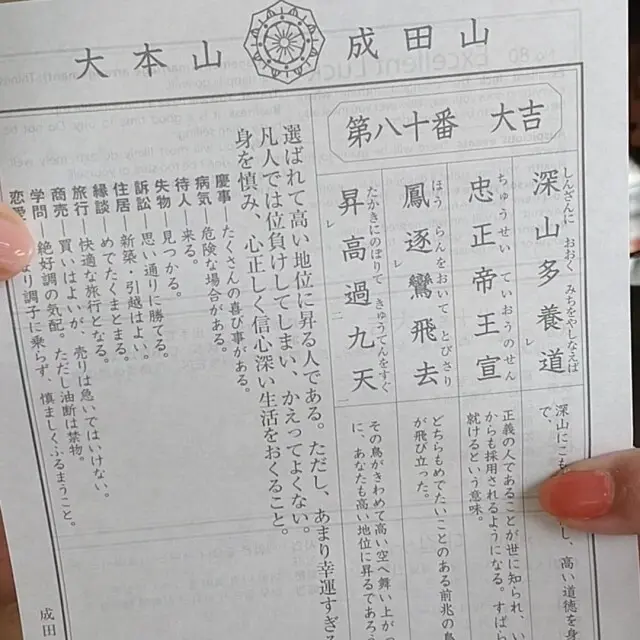 大本山 成田山
第八十番 大吉
深山多養道
しんざんに おおく みちをやしなえば
レ
忠正帝王宣
ちゅうせい ていおうのせん
鳳逐鸞飛去
ほう らんをおいて とびさり
レ
昇高過九天
たかきにのぼりて きゅうてんをすぐ
レ 二 一
深山にこも
し、高い道徳を身
で、
正義の人であることが世に知られ、い
からも採用されるようになる。すばら
就けるという意味。
どちらもめでたいことのある前兆の鳥
が飛び立った。
その鳥がきわめて高い空へ舞い上がっ
に、あなたも高い地位に昇るであろ
選ばれて高い地位に昇る人である。ただし、あまり幸運すぎる
凡人では位負けしてしまい、かえってよくない。
身を慎み、心正しく信心深い生活をおくること。
慶事―たくさんの喜び事がある。
病気―危険な場合がある。
待人―来る。
失物―見つかる。
訴訟―思い通りに勝てる。
住居―新築・引越はよい。
縁談―めでたくまとまる。
旅行―快適な旅行となる。
商売―買いはよいが、売りは急いではいけない。
学問―絶好調の気配。ただし油断は禁物。
恋愛
り調子に乗らず、慎ましくふるまうこと。
成田
No.80 Excellent Luck